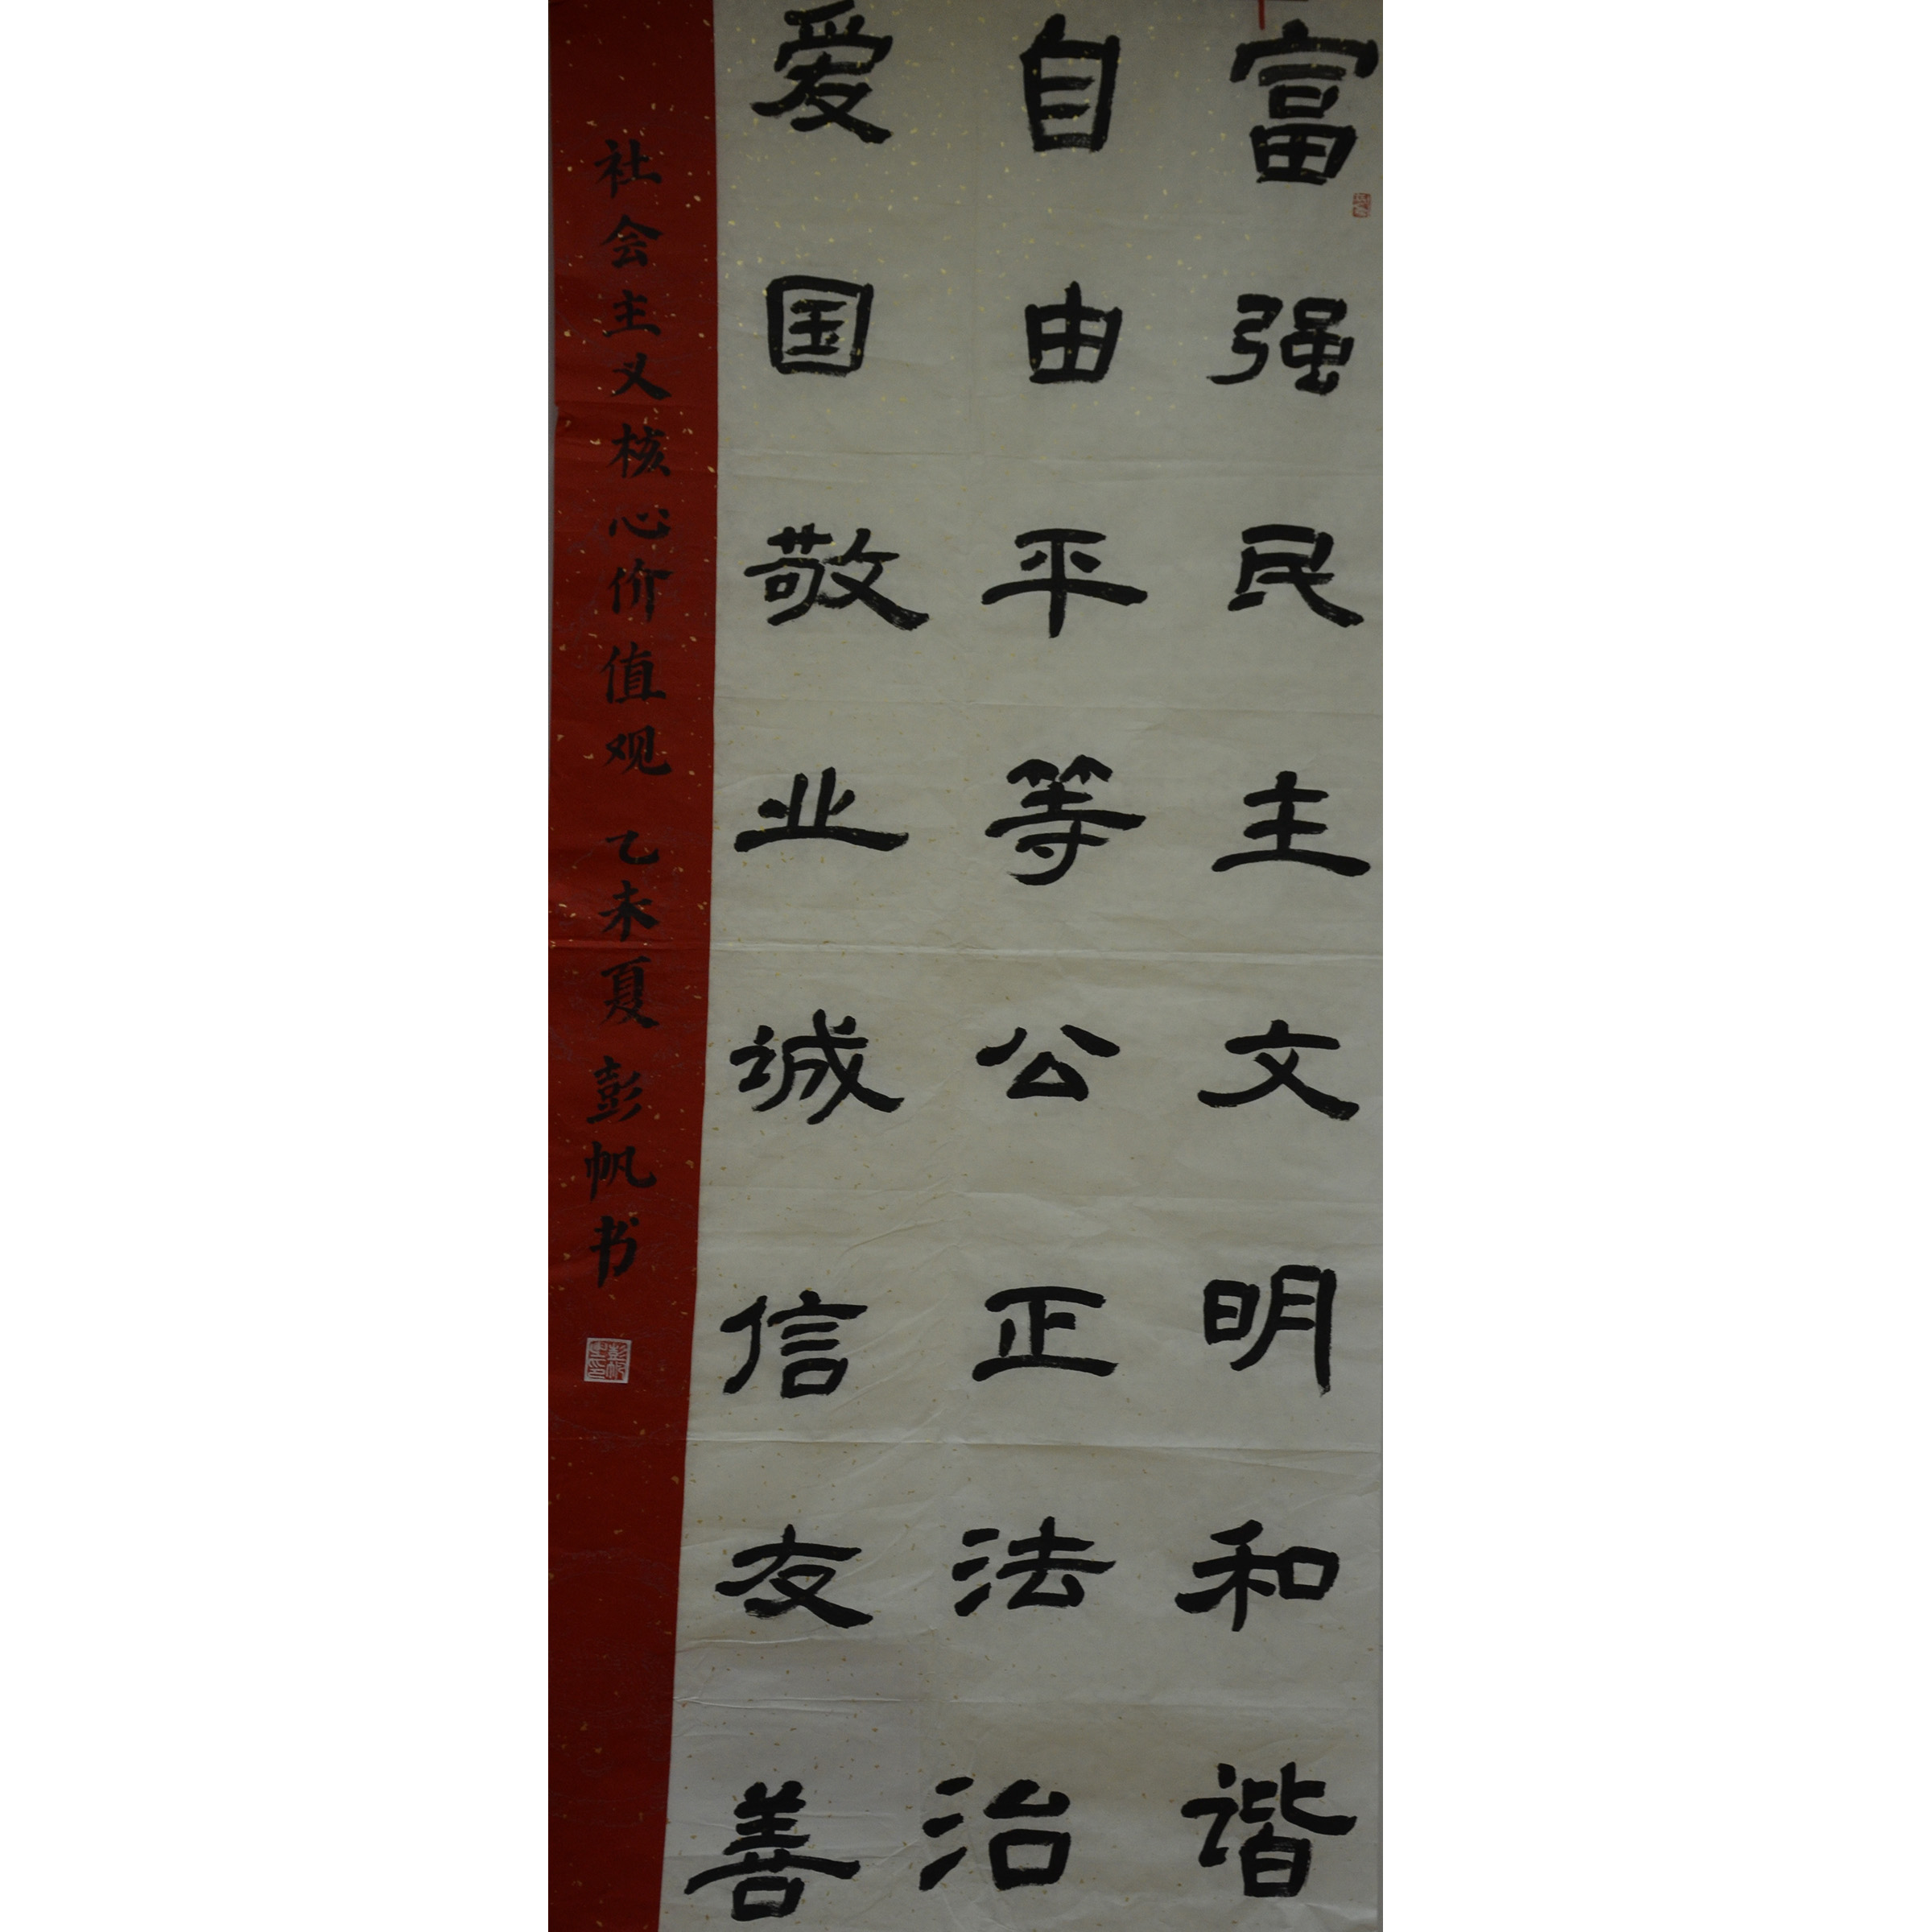 富强民主文明和谐
自由平等公正法治
爱国敬业诚信友善
社会主义核心价值观 乙未夏 彭帆书